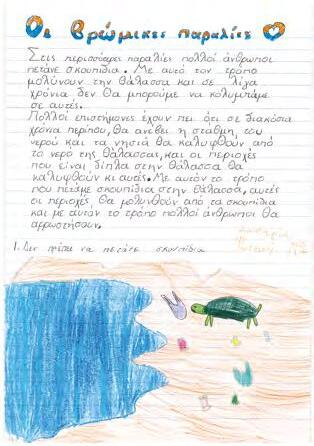 Οι βρώμικες παραλίες
Στις περισσότερες παραλίες πολλοί άνθρωποι
πετάνε σκουπίδια. Με αυτό τον τρόπο
μολύνουν την θάλασσα και σε λίγα
χρόνια δεν θα μπορούμε να κολυμπάμε
σε αυτές.
Πολλοί επιστήμονες έχουν πει ότι σε διακόσια
χρόνια περίπου, θα ανέβει η σταθμη του
νερού και τα νησιά θα καλυφθούν από
το νερό της θάλασσας, και οι περιοχές
που είναι δίπλα στην θάλασσα θα
καλυφθούν κι αυτές. Με αυτόν το τρόπο
που πετάμε σκουπίδια στην θάλασσα, αυτές
οι περιοχές, θα μολυνθούν από τα σκουπίδια
και με αυτόν το τρόπο πολλοί άνθρωποι θα
αρρωστήσουν.
1. Δεν πρέπει να πετάτε σκουπίδια